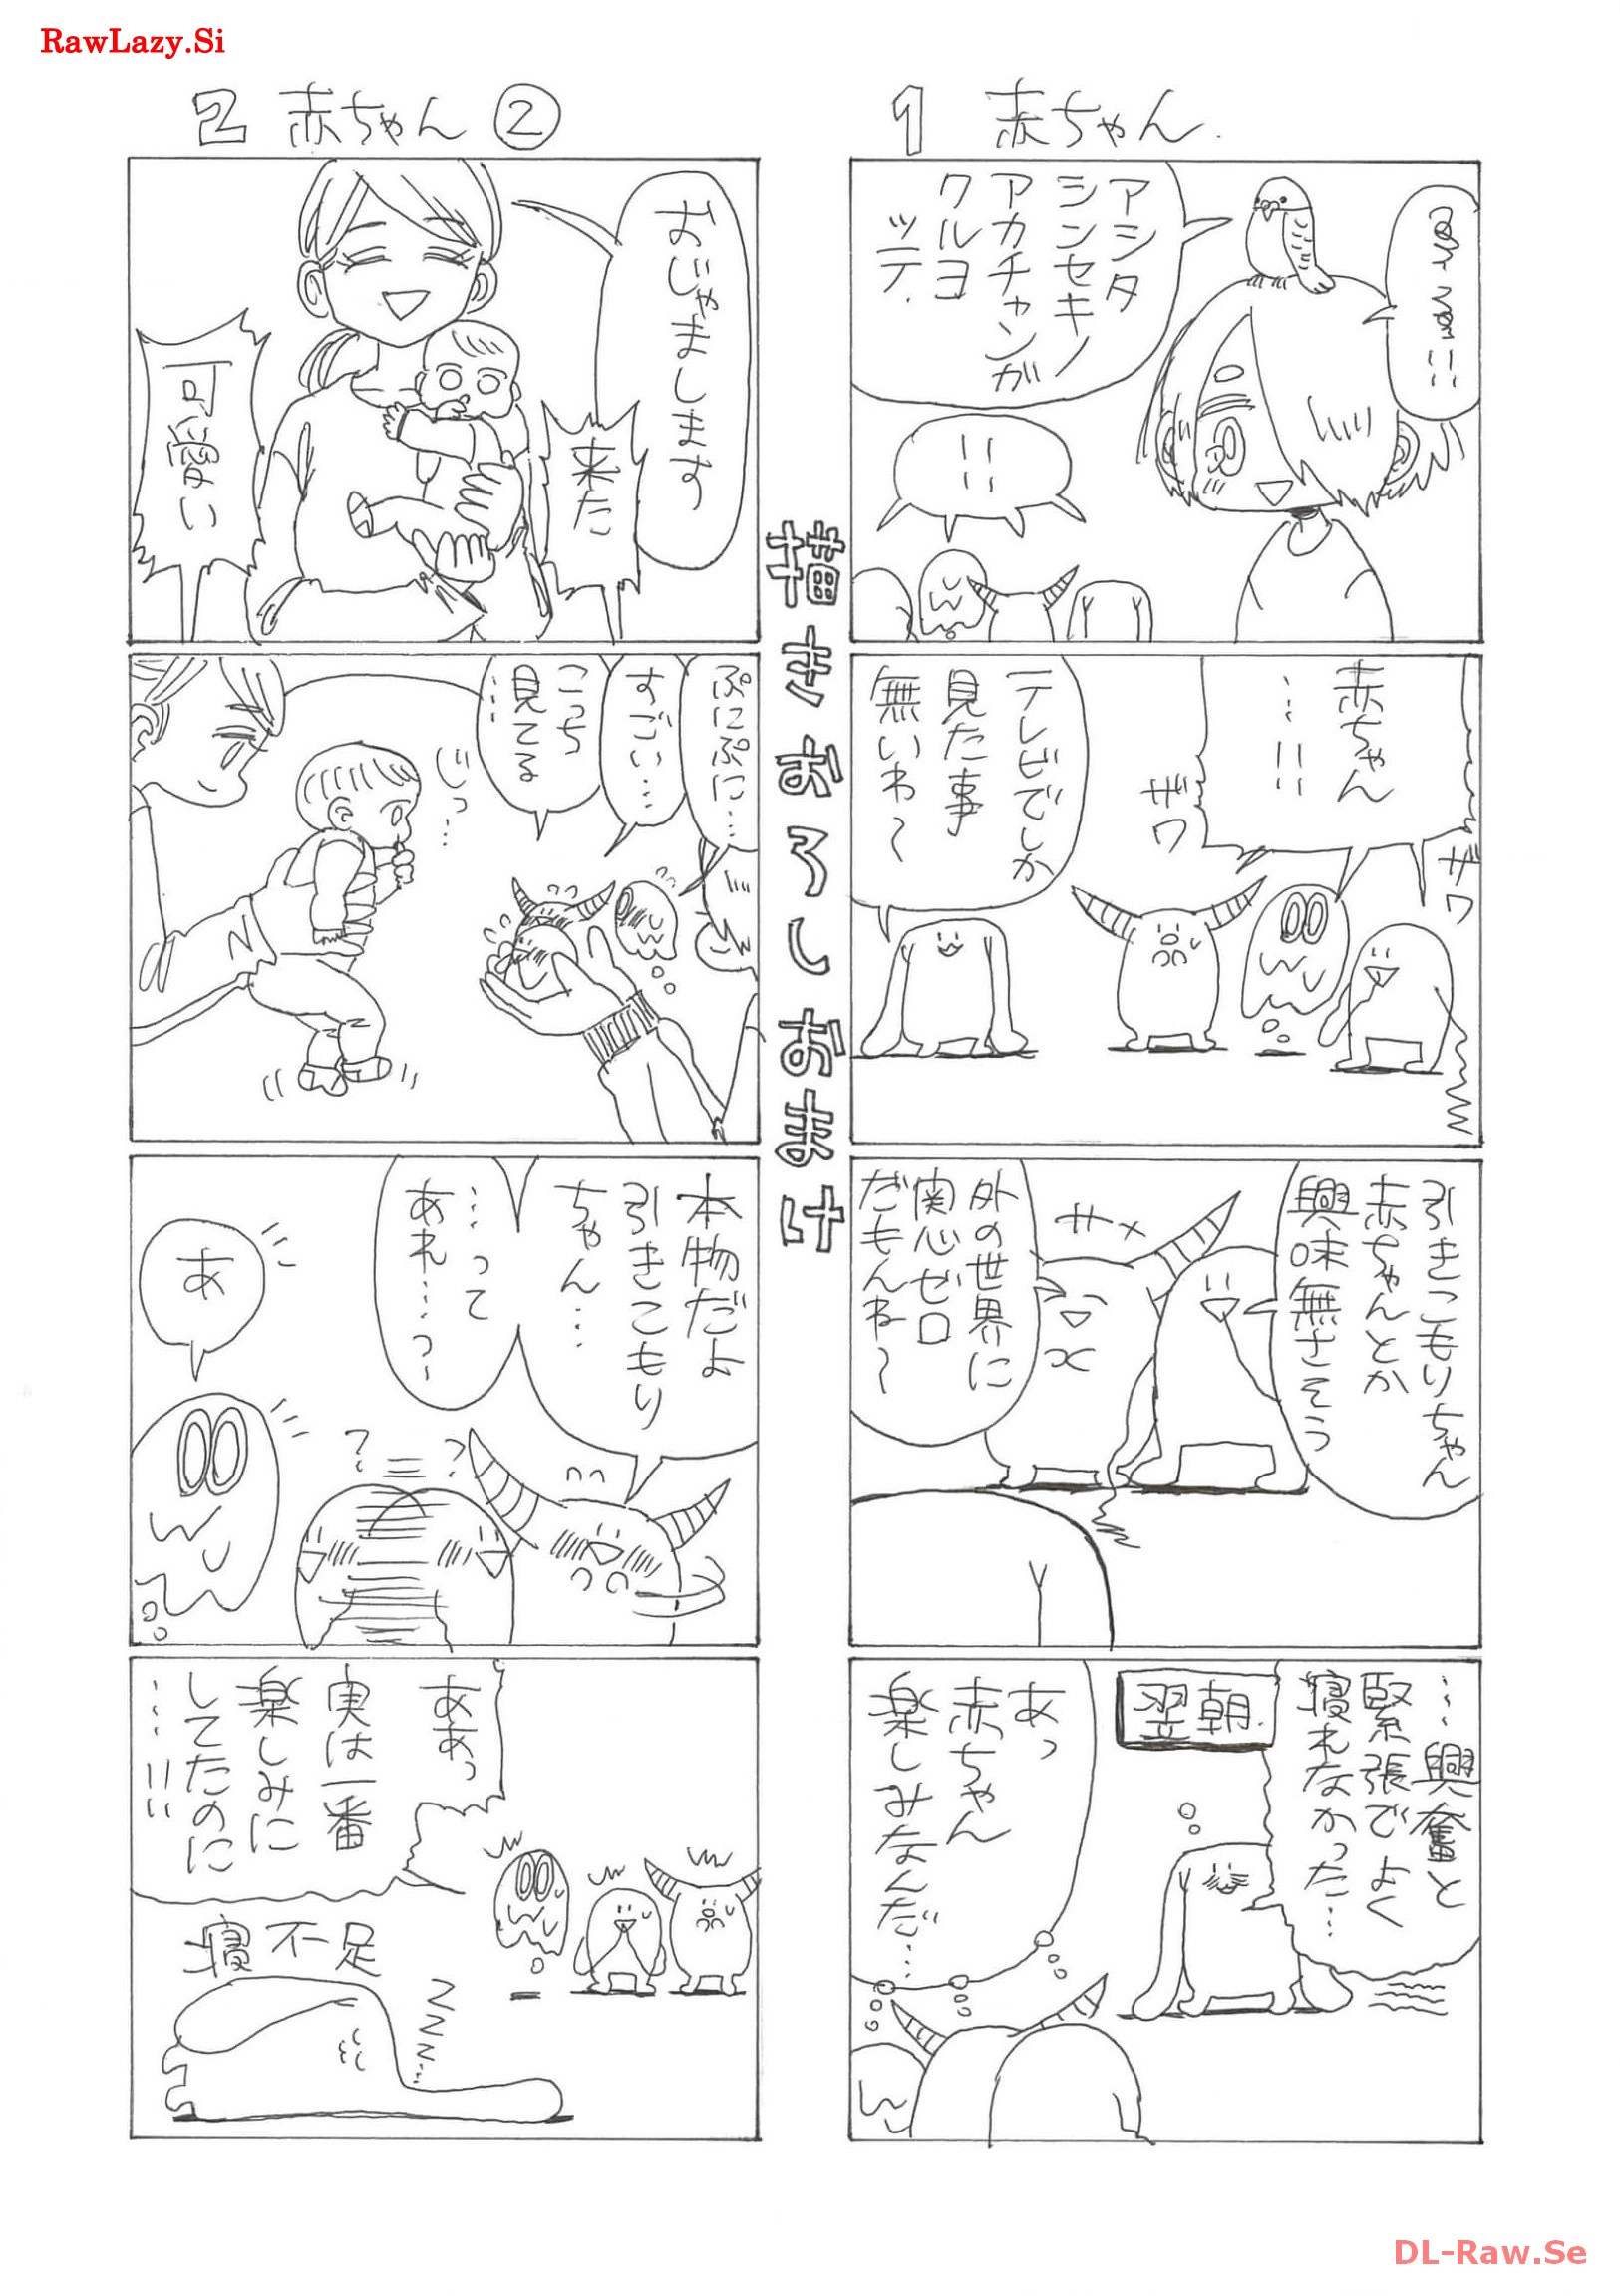 RawLazy.Si
1 赤ちゃん
アシタ
シンセキノ
アカチャンが
クルヨ
ッテ
!!!
赤ちゃん
…!!
ザワ
ザワ
テレビでしか
見た事
無いわ〜
引きこもりちゃん
赤ちゃんとか
興味無さそう
外の世界に
関心ゼロ
だもんね〜
…興奮と
緊張でよく
寝れなかった…
翌朝
あっ
赤ちゃん
楽しみなんだ…
描きおろしおまけ
2 赤ちゃん ②
おじゃまします
来た
可愛い
ぷにぷに…
すごい…
こっち
見てる
…
じっ…
本物だよ
引きこもり
ちゃん…
…って
あれ…っ
?
?
あ
ああっ
実は一番
楽しみに
してたのに
…!!
寝不足
DL-Raw.Se